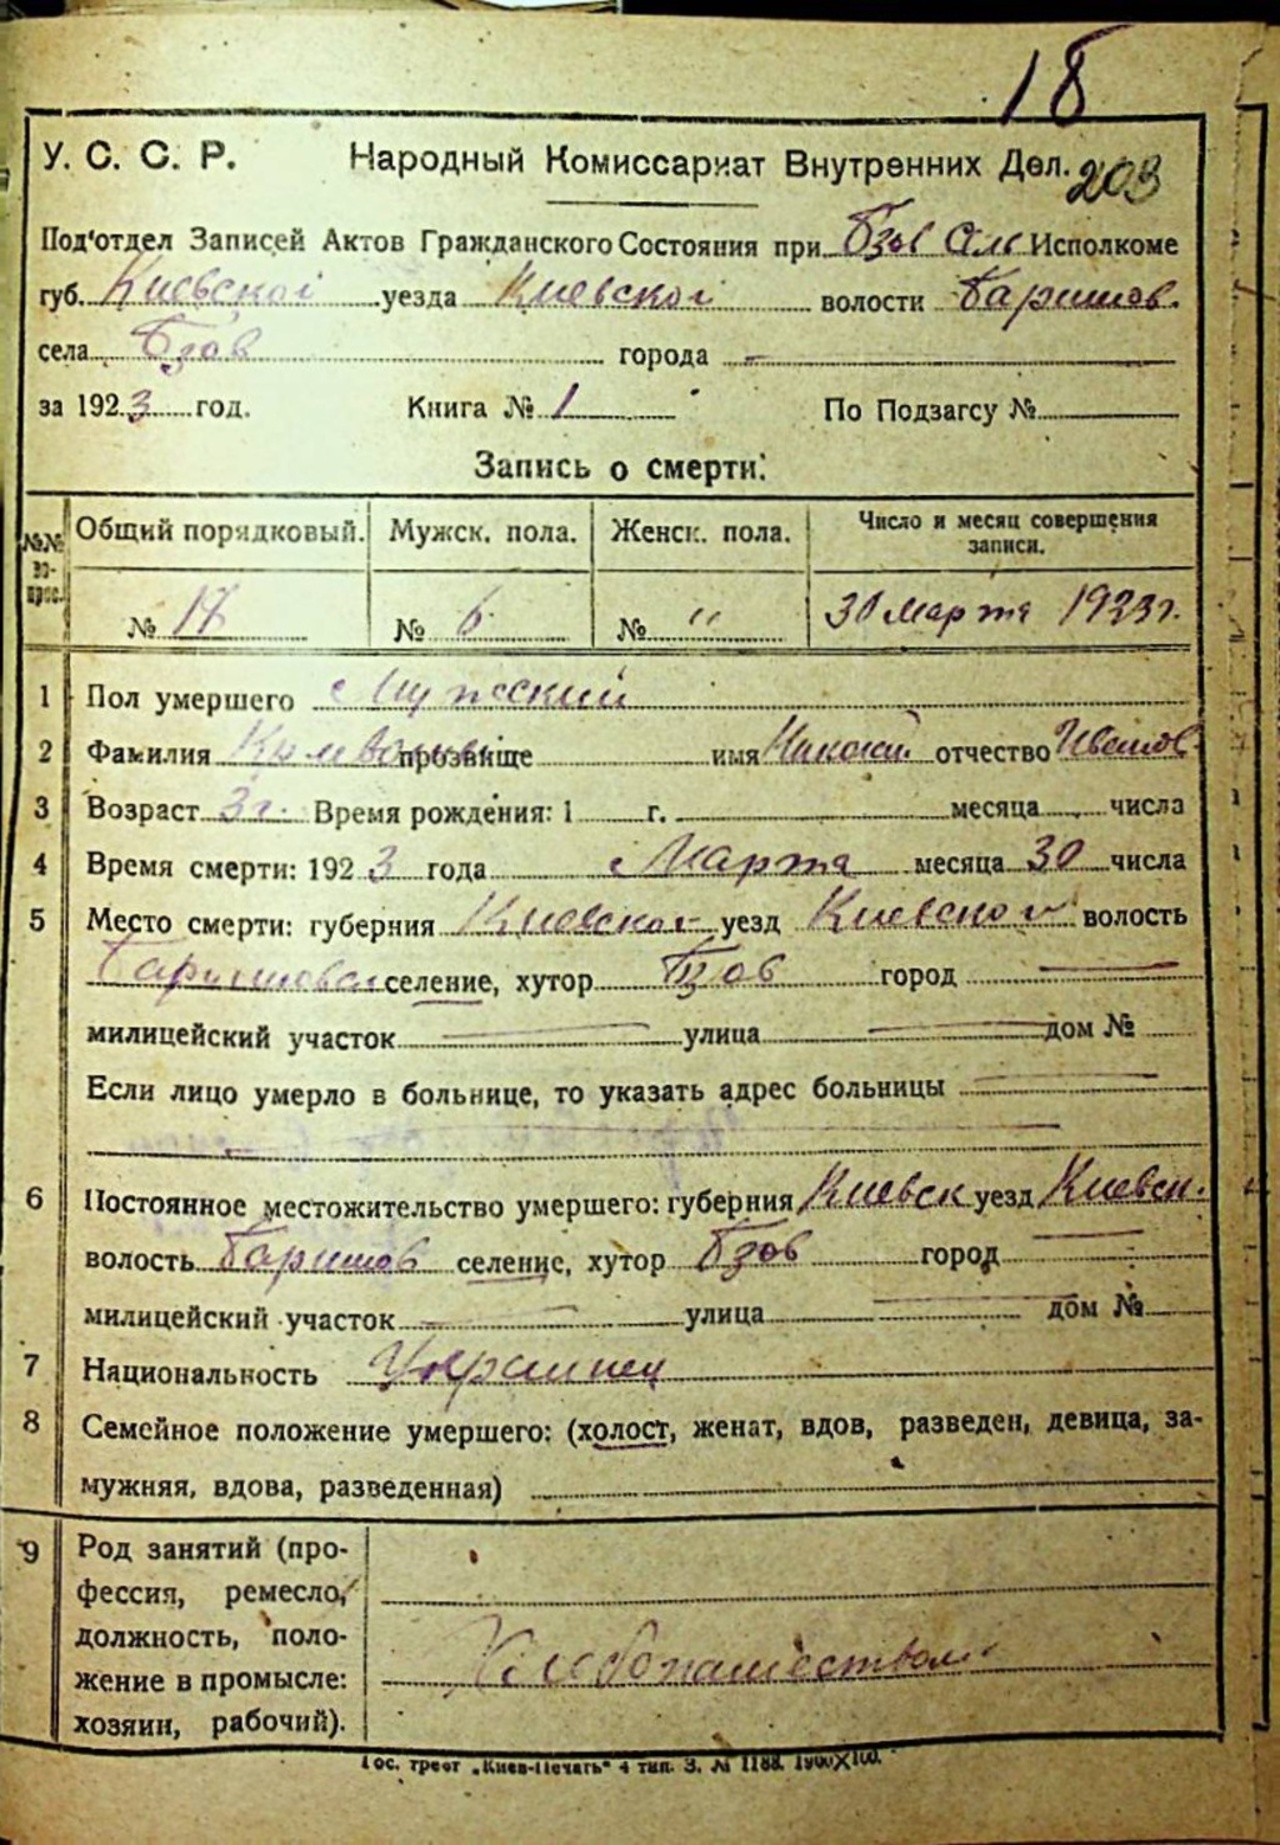 18
У. С. С. Р. Народный Комиссариат Внутренних Дел. 203
Под'отдел Записей Актов Гражданского Состояния при Бзов Исполкоме
губ. Киевской уезда Киевской волости Баришов.
села Бзов города —
за 1923 год. Книга № 1 По Подзагсу №
Запись о смерти:
№№ во-прос. Общий порядковый. Мужск. пола. Женск. пола. Число и месяц совершения записи.
№ 18 № 6 № " 30 Марта 1923 г.
1 Пол умершего Мужский
2 Фамилия прозвище имя Николай отчество Иванов.
3 Возраст 3 г. Время рождения: 1 г. месяца числа
4 Время смерти: 1923 года Марта месяца 30 числа
5 Место смерти: губерния Киевской уезд Киевской волость
Баришовск селение, хутор Бзов город —
милицейский участок — улица — дом №
Если лицо умерло в больнице, то указать адрес больницы —
6 Постоянное местожительство умершего: губерния Киевск уезд Киевск.
волость Баришов селение, хутор Бзов город —
милицейский участок — улица — дом №
7 Национальность Украинец
8 Семейное положение умершего: (холост, женат, вдов, разведен, девица, за-
мужняя, вдова, разведенная)
9 Род занятий (про-
фессия, ремесло,
должность, поло-
жение в промысле:
хозяин, рабочий).
Хлебопашеством
Гос. трест „Киев-Печать" 4 тип. З. № 1188. 1900X100.